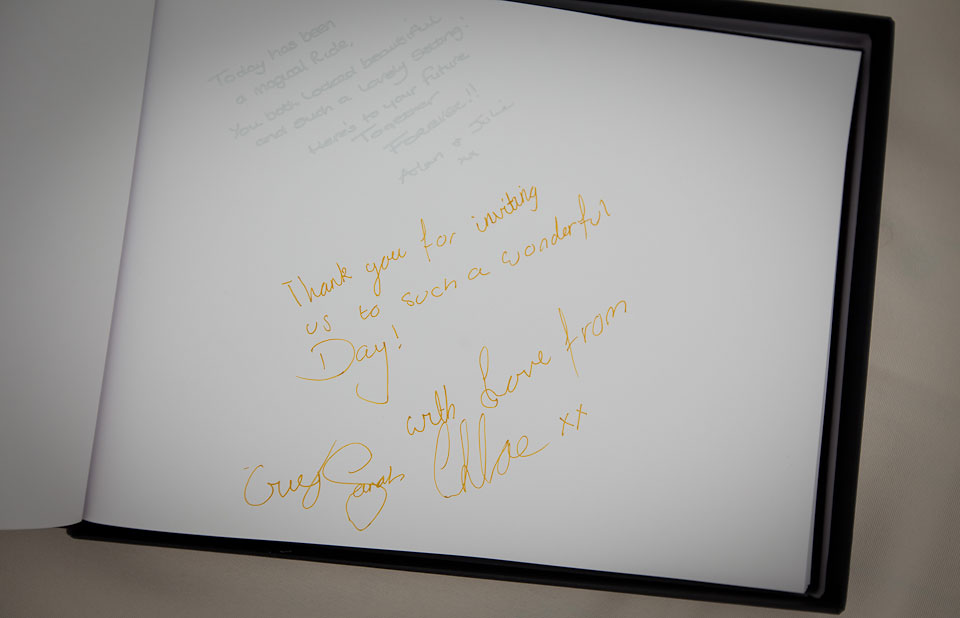 Today has been
a magical Ride,
You both looked beautiful
and such a lovely setting!
Here's to your future
Together
FOREVER!!
&
xx
Thank you for inviting
us to such a wonderful
Day!
with Love from
Sarah Chloe xx